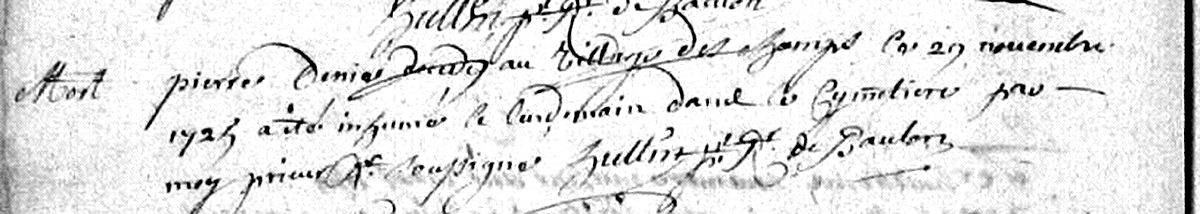 Hullin pr. Rr. de Baulon
Mort
pierre Denis decedé au village des champs le 29 novembre
1725 a été inhumé le lendemain dans le Cymetiere par
moy prieur Rr. soussigné Hullin pr. Rr. de Baulon